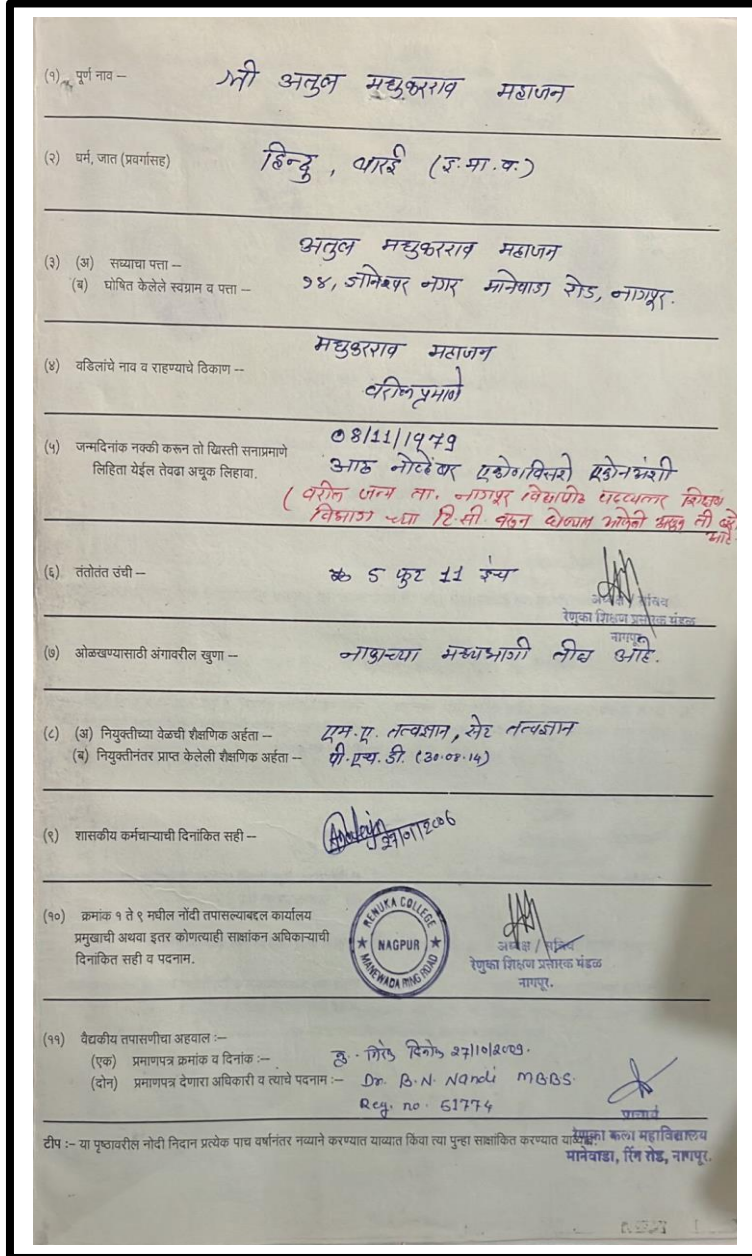 (१) पूर्ण नाव – श्री अतुल मधुकरराव महाजन
(२) धर्म, जात (प्रवर्गासह) हिन्दु, बारई (इ.मा.व.)
(३) (अ) सध्याचा पत्ता – अतुल मधुकरराव महाजन
(ब) घोषित केलेले स्वग्राम व पत्ता – १४, ज्ञानेश्वर नगर मानेवाडा रोड, नागपूर.
(४) वडिलांचे नाव व राहण्याचे ठिकाण –
मधुकरराव महाजन
वरीलप्रमाणे
(५) जन्मदिनांक नक्की करून तो ख्रिस्ती सनाप्रमाणे
लिहिता येईल तेवढा अचूक लिहावा.
08/11/1979
आठ नोव्हेंबर एकोणविसशे एकोनअंशी
(वरील जन्म ता. नागपूर विद्यापीठ पदव्युत्तर शिक्षण
विभाग च्या टि.सी वरून घेण्यात आलेली असून ती
आहे
(६) तंतोतंत उंची – 5 फुट 11 इंच
अध्यक्ष / सचिव
रेणुका शिक्षण प्रसारक मंडळ
नागपूर
(७) ओळखण्यासाठी अंगावरील खुणा – नाकाच्या मध्यभागी तीळ आहे.
(८) (अ) नियुक्तीच्या वेळची शैक्षणिक अर्हता – एम.ए. तत्वज्ञान, सेट तत्वज्ञान
(ब) नियुक्तीनंतर प्राप्त केलेली शैक्षणिक अर्हता – पी.एच.डी. (30.08.14)
(९) शासकीय कर्मचाऱ्याची दिनांकित सही –
(१०) क्रमांक १ ते ९ मधील नोंदी तपासल्याबद्दल कार्यालय
प्रमुखाची अथवा इतर कोणत्याही साक्षांकन अधिकाऱ्याची
दिनांकित सही व पदनाम.
RENUKA COLLEGE
NAGPUR
MANEWADA RING ROAD
अध्यक्ष / सचिव
रेणुका शिक्षण प्रसारक मंडळ
नागपूर.
(११) वैद्यकीय तपासणीचा अहवाल :–
(एक) प्रमाणपत्र क्रमांक व दिनांक :–
(दोन) प्रमाणपत्र देणारा अधिकारी व त्याचे पदनाम :– Dr. B.N. Nandi MBBS.
Reg. no. 51774
प्राचार्य
रेणुका कला महाविद्यालय
मानेवाडा, रिंग रोड, नागपूर.
टीप :– या पृष्ठावरील नोंदी निदान प्रत्येक पाच वर्षानंतर नव्याने करण्यात याव्यात किंवा त्या पुन्हा साक्षांकित करण्यात